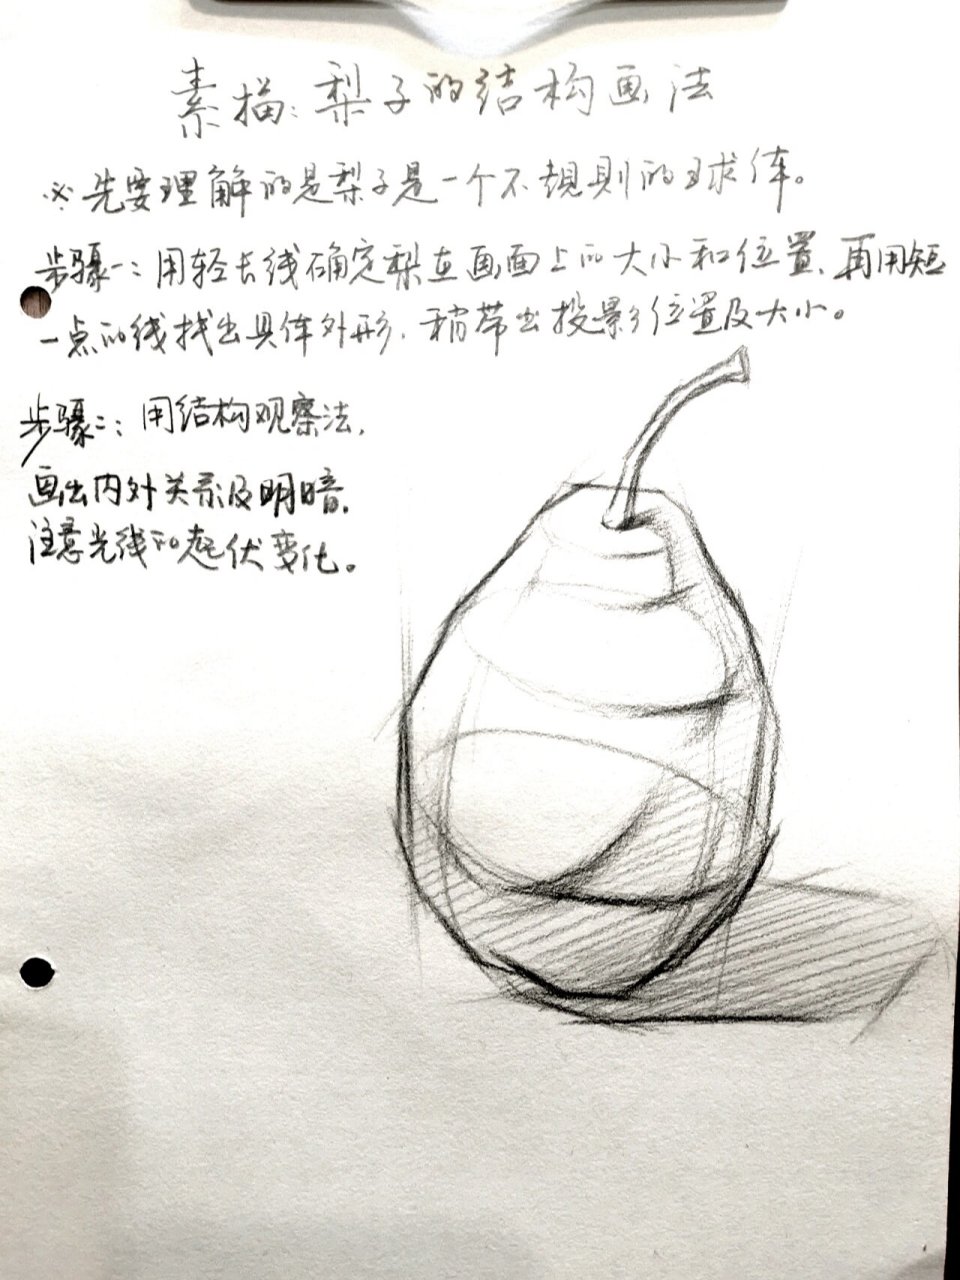 素描:梨子的结构画法
※先要理解的是梨子是一个不规则的球体。
步骤一:用轻长线确定梨在画面上的大小和位置、再用短
一点的线找出具体外形,稍带出投影位置及大小。
步骤二:用结构观察法,
画出内外关系及明暗,
注意光线和起伏变化。